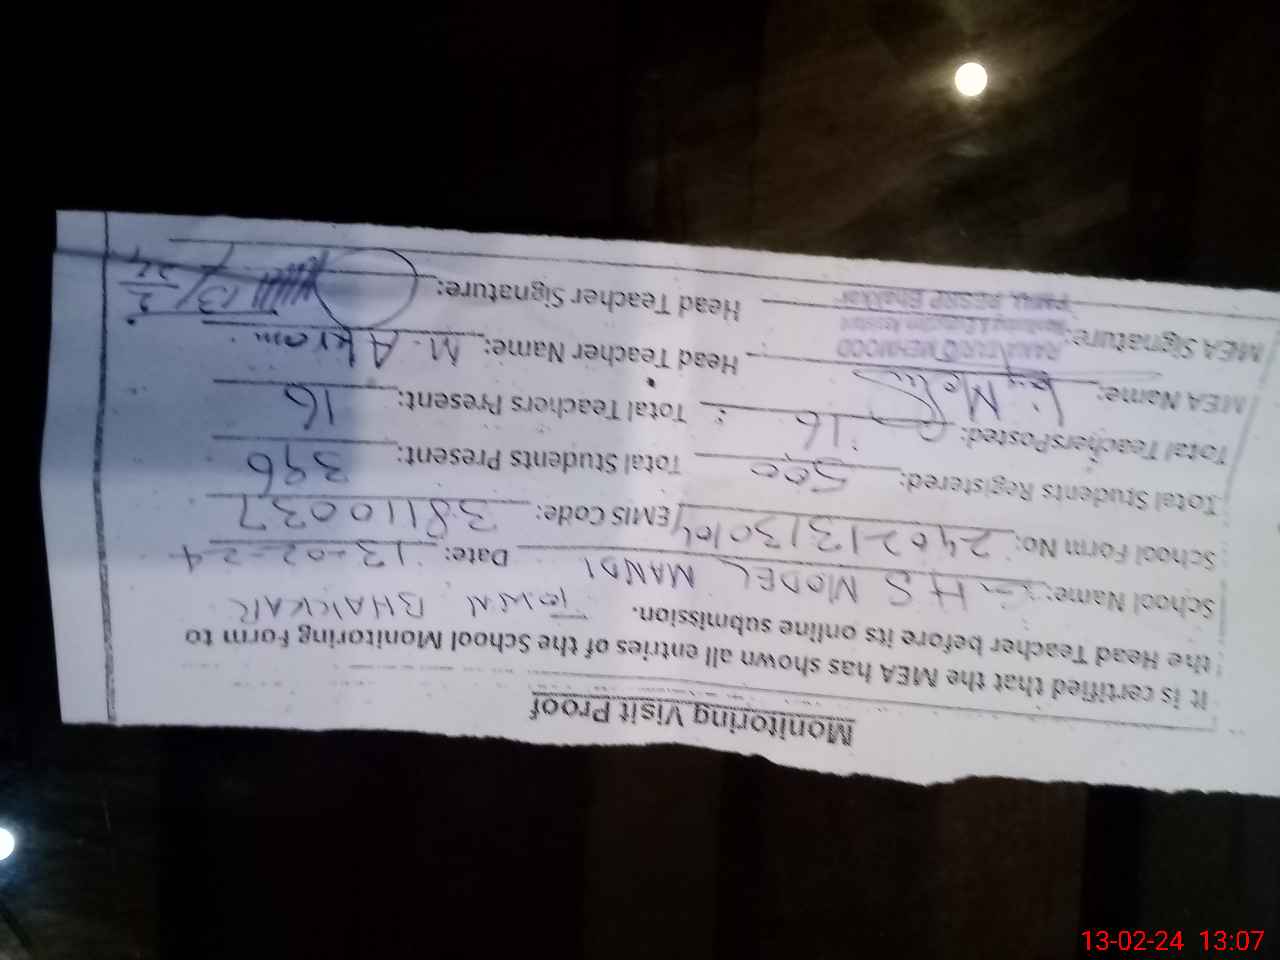 Monitoring Visit Proof
It is certified that the MEA has shown all entries of the School Monitoring Form to
the Head Teacher before its online submission. TOWN BHAKKAR
School Name: HS MODEL MANDI Date: 13-02-24
School Form No: 240213130104 EMIS Code: 38110037
Total Students Registered: 500 Total Students Present: 396
Total Teachers Posted: 16 Total Teachers Present: 16
MEA Name: Head Teacher Name: M. Akram
MEHMOOD
MEA Signature: Head Teacher Signature: 13/2/24
PESRP Bhakkar
13-02-24 13:07